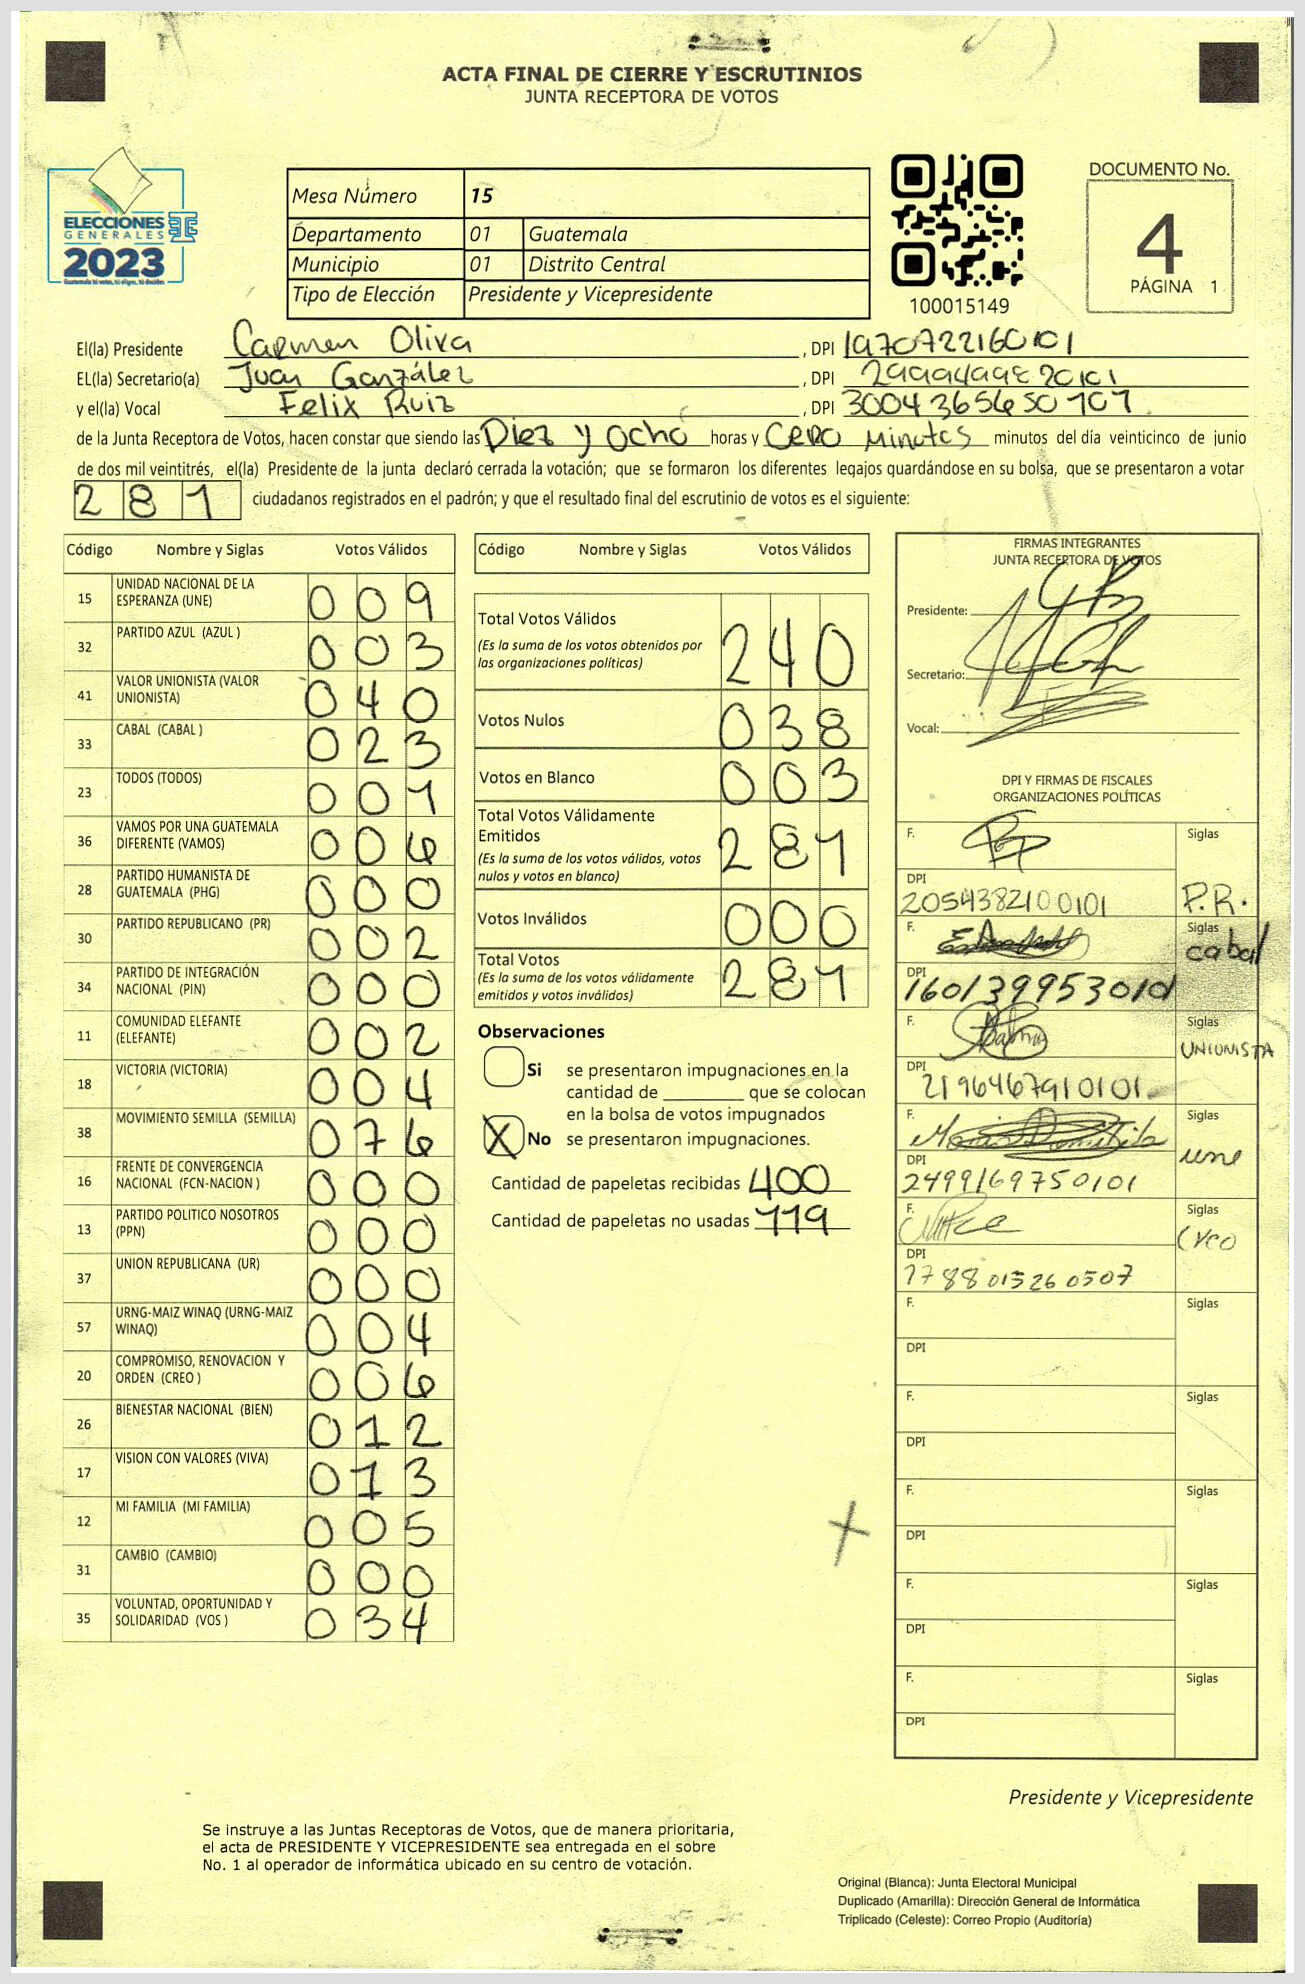 ACTA FINAL DE CIERRE Y ESCRUTINIOS
JUNTA RECEPTORA DE VOTOS
ELECCIONES
GENERALES
2023
Mesa Número 15
Departamento 01 Guatemala
Municipio 01 Distrito Central
Tipo de Elección Presidente y Vicepresidente
100015149
DOCUMENTO No.
4
PÁGINA 1
El(la) Presidente Carmen Oliva , DPI 1970722160101
EL(la) Secretario(a) Juan González , DPI
y el(la) Vocal Felix Ruiz , DPI
de la Junta Receptora de Votos, hacen constar que siendo las Diez y ocho horas y Cero minutos minutos del día veinticinco de junio
de dos mil veintitrés, el(la) Presidente de la junta declaró cerrada la votación; que se formaron los diferentes legajos quardándose en su bolsa, que se presentaron a votar
281 ciudadanos registrados en el padrón; y que el resultado final del escrutinio de votos es el siguiente:
Código Nombre y Siglas Votos Válidos
15 UNIDAD NACIONAL DE LA ESPERANZA (UNE) 009
32 PARTIDO AZUL (AZUL ) 003
41 VALOR UNIONISTA (VALOR UNIONISTA) 040
33 CABAL (CABAL ) 023
23 TODOS (TODOS) 001
36 VAMOS POR UNA GUATEMALA DIFERENTE (VAMOS) 006
28 PARTIDO HUMANISTA DE GUATEMALA (PHG) 000
30 PARTIDO REPUBLICANO (PR) 002
34 PARTIDO DE INTEGRACIÓN NACIONAL (PIN) 000
11 COMUNIDAD ELEFANTE (ELEFANTE) 002
18 VICTORIA (VICTORIA) 004
38 MOVIMIENTO SEMILLA (SEMILLA) 076
16 FRENTE DE CONVERGENCIA NACIONAL (FCN-NACION ) 000
13 PARTIDO POLITICO NOSOTROS (PPN) 000
37 UNION REPUBLICANA (UR) 000
57 URNG-MAIZ WINAQ (URNG-MAIZ WINAQ) 004
20 COMPROMISO, RENOVACION Y ORDEN (CREO ) 006
26 BIENESTAR NACIONAL (BIEN) 012
17 VISION CON VALORES (VIVA) 013
12 MI FAMILIA (MI FAMILIA) 005
31 CAMBIO (CAMBIO) 000
35 VOLUNTAD, OPORTUNIDAD Y SOLIDARIDAD (VOS ) 034
Código Nombre y Siglas Votos Válidos
Total Votos Válidos 240
(Es la suma de los votos obtenidos por
las organizaciones políticas)
Votos Nulos 038
Votos en Blanco 003
Total Votos Válidamente
Emitidos 281
(Es la suma de los votos válidos, votos
nulos y votos en blanco)
Votos Inválidos 000
Total Votos 281
(Es la suma de los votos válidamente
emitidos y votos inválidos)
Observaciones
Si se presentaron impugnaciones en la
cantidad de ________ que se colocan
en la bolsa de votos impugnados
X No se presentaron impugnaciones.
Cantidad de papeletas recibidas 400
Cantidad de papeletas no usadas 119
FIRMAS INTEGRANTES
JUNTA RECEPTORA DE VOTOS
Presidente:
Secretario:
Vocal:
DPI Y FIRMAS DE FISCALES
ORGANIZACIONES POLÍTICAS
F. Siglas
DPI P.R.
2054382100101
F. Siglas
cabal
DPI
F. Siglas
UNIONISTA
DPI
2196467910101
F. Siglas
une
DPI
2499169750101
F. Siglas
DPI
1788015260507
F. Siglas
DPI
F. Siglas
DPI
F. Siglas
DPI
F. Siglas
DPI
F. Siglas
DPI
Presidente y Vicepresidente
Se instruye a las Juntas Receptoras de Votos, que de manera prioritaria,
el acta de PRESIDENTE Y VICEPRESIDENTE sea entregada en el sobre
No. 1 al operador de informática ubicado en su centro de votación.
Original (Blanca): Junta Electoral Municipal
Duplicado (Amarilla): Dirección General de Informática
Triplicado (Celeste): Correo Propio (Auditoría)